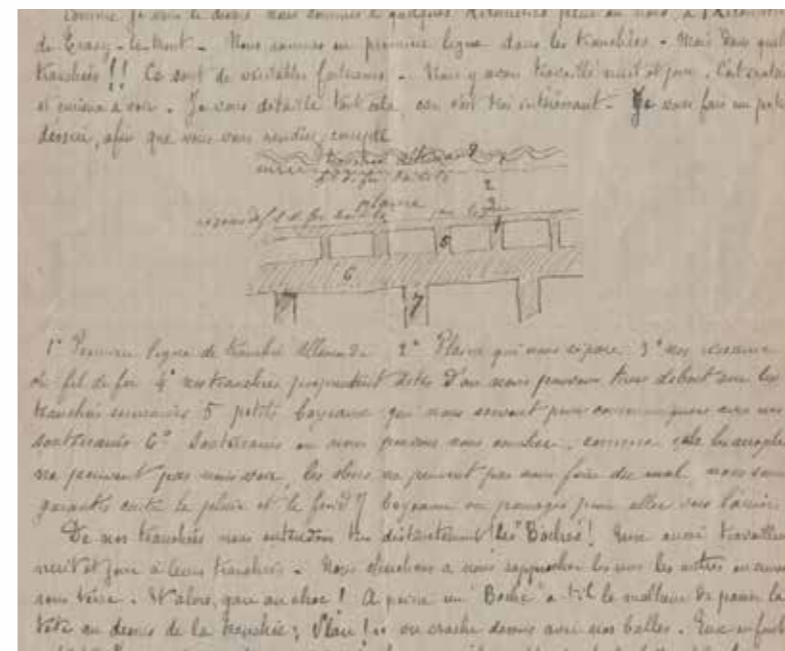 Comme je vous le disais nous sommes à quelques kilomètres plus ou moins, à
de Tracy-le-Mont - Nous sommes en première ligne dans les tranchées - Mais dans quel
tranchées !! Ce sont de véritables forteresses - Nous y avons travaillé nuit et jour. C'est
et curieux à voir. Je vous détaille tout cela, car c'est très intéressant - Je vous fais un petit
dessin, afin que vous vous rendiez compte
tranchée allemande
fil de fer
2
plaine
réseau de fil de fer 3
4
5
6
7
7
1° Première ligne de tranchée allemande 2° Plaine qui nous sépare 3° nos réseaux
de fil de fer 4° nos tranchées proprement dites d'où nous pouvons tirer debout sur les
tranchées ennemies 5 petits boyaux qui nous servent pour communiquer avec nos
souterrains 6° Souterrains où nous pouvons nous coucher, comme cela les
ne peuvent pas nous voir, les obus ne peuvent pas nous faire du mal, nous sommes
garantis contre la pluie et le froid 7 boyaux ou passages pour aller vers l'arrière
De nos tranchées nous entendons très distinctement les "Boches"! Eux aussi travaillent
nuit et jour à leurs tranchées - Nous cherchons à nous rapprocher les uns les autres
sous terre. Et alors, gare au choc ! A peine un "Boche" a-t-il le malheur de passer la
tête au dessus de la tranchée ; Vlan !.. on crache dessus avec nos balles. Eux en font